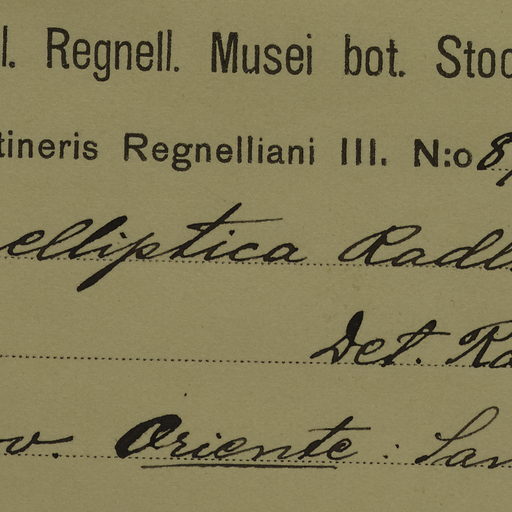 l. Regnell. Musei bot. Stoc
tineris Regnelliani III. N:o 8
elliptica Radl
Det. Ra
ov. Oriente : San